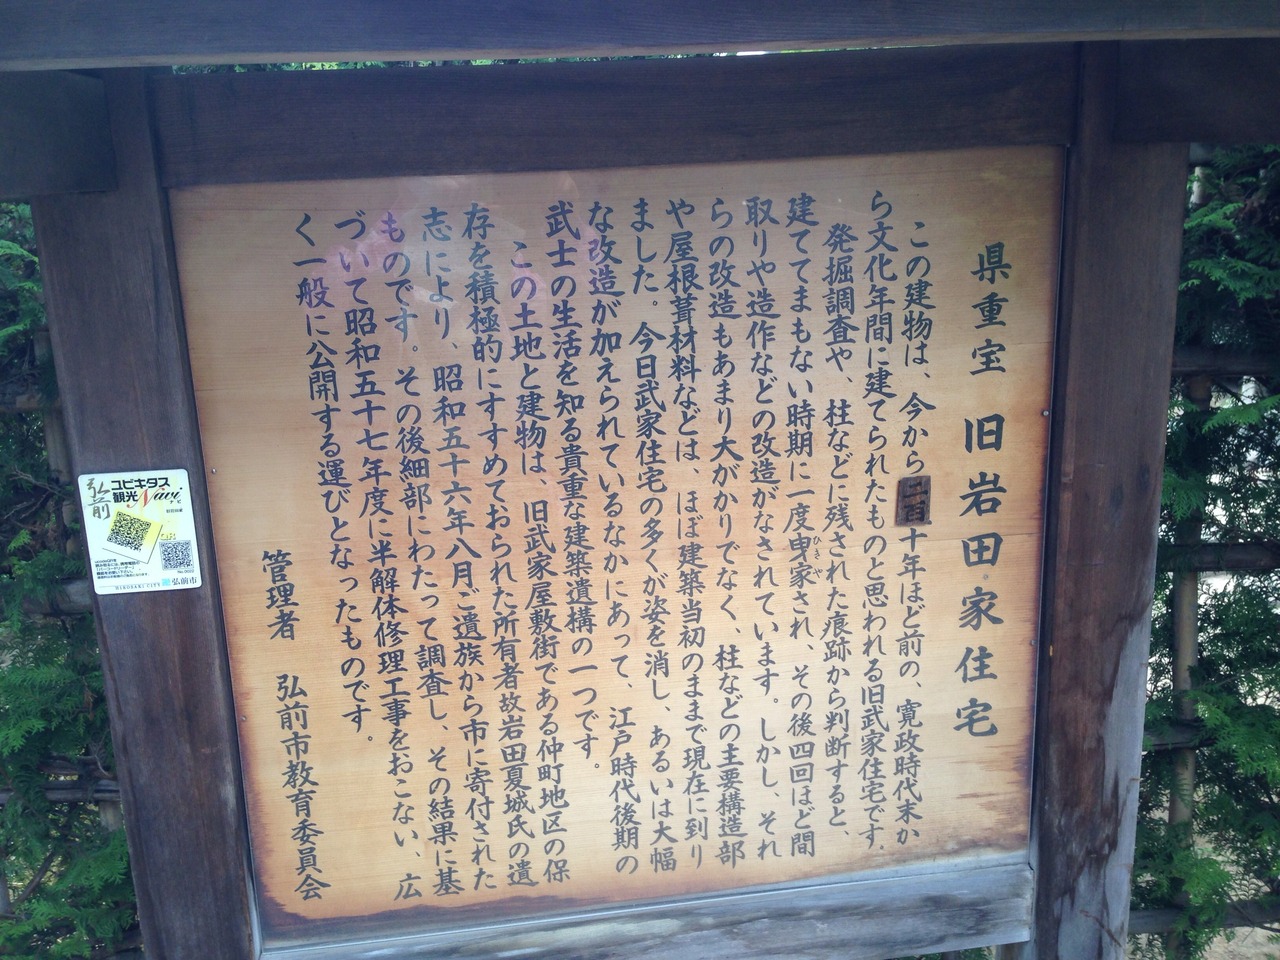 県重宝 旧岩田家住宅
この建物は、今から二百十年ほど前の、寛政時代末か
ら文化年間に建てられたものと思われる旧武家住宅です。
発掘調査や、柱などに残された痕跡から判断すると、
建ててまもない時期に一度曳家され、その後四回ほど間
ひきや
取りや造作などの改造がなされています。しかし、それ
らの改造もあまり大がかりでなく、柱などの主要構造部
や屋根葺材料などは、ほぼ建築当初のままで現在に到り
ました。今日武家住宅の多くが姿を消し、あるいは大幅
な改造が加えられているなかにあって、江戸時代後期の
武士の生活を知る貴重な建築遺構の一つです。
この土地と建物は、旧武家屋敷街である仲町地区の保
存を積極的にすすめておられた所有者故岩田夏城氏の遺
志により、昭和五十六年八月ご遺族から市に寄付された
ものです。その後細部にわたって調査し、その結果に基
づいて昭和五十七年度に半解体修理工事をおこない、広
く一般に公開する運びとなったものです。
管理者 弘前市教育委員会
弘前
ユビキタス
観光Navi
ナビ
QR
弘前市
HIROSAKI CITY